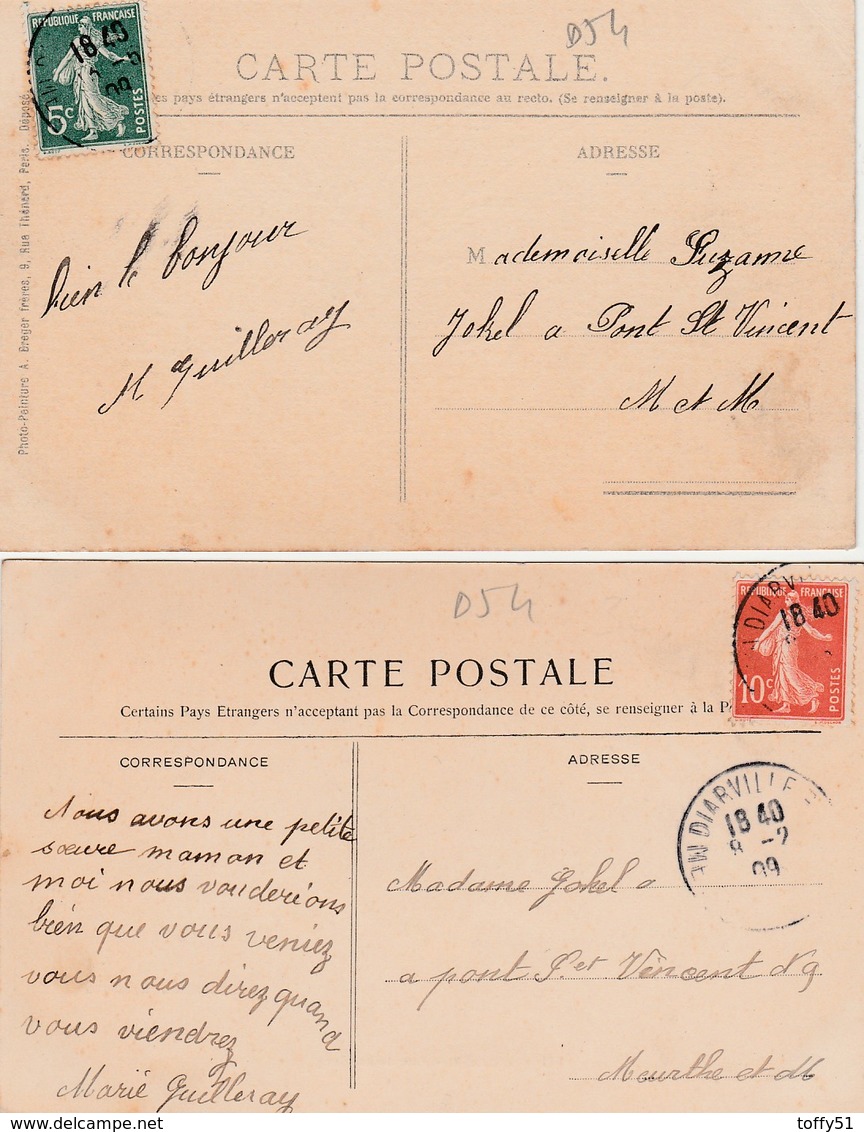 RÉPUBLIQUE FRANÇAISE
18 40
09
5c
POSTES
D54
CARTE POSTALE.
es pays étrangers n'acceptent pas la correspondance au recto. (Se renseigner à la poste).
Photo-Peinture A. Breger frères, 9, Rue Thénard, Paris. Déposé
CORRESPONDANCE
bien le bonjour
M Guilleray
ADRESSE
Mademoiselle Suzanne
Jokel a Pont St Vincent
M et M
D54
DIARVI
18 40
RÉPUBLIQUE FRANÇAISE
10c
POSTES
CARTE POSTALE
Certains Pays Etrangers n'acceptent pas la Correspondance de ce côté, se renseigner à la P
CORRESPONDANCE
Nous avons une petite
sœure maman et
moi nous vouderions
bien que vous veniez
vous nous direz quand
vous viendrez
Marie Guilleray
ADRESSE
DIARVILLE
18 40
8 -2
09
Madame Jokel a
a pont S.et Vincent
Meurthe et M
toffy51